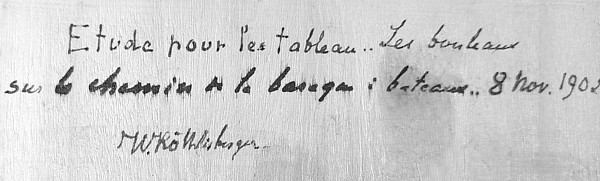 Etude pour les tableau.. Les bouleaux
sur le chemin de la baraque à bateaux.. 8 Nov. 1902
W. Röthlisberger.